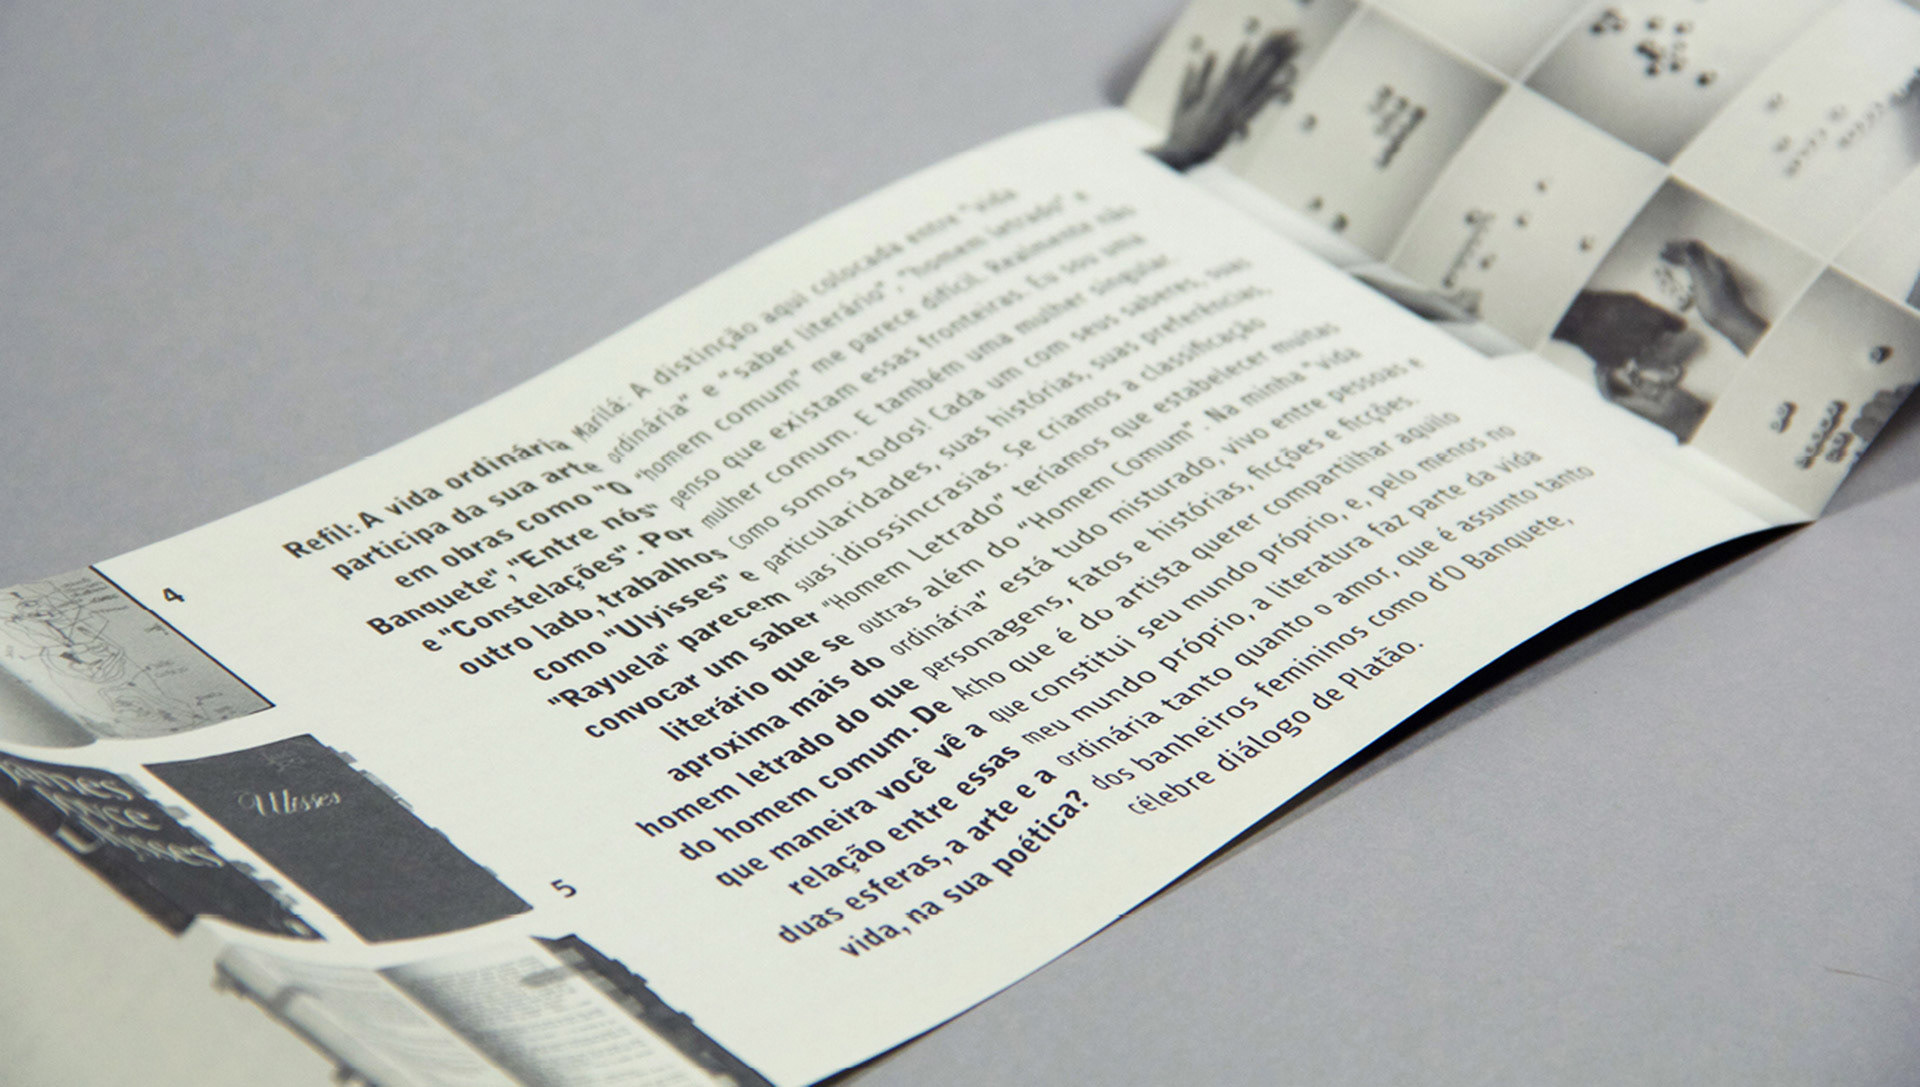 4
5
Refil: A vida ordinária
participa da sua arte
em obras como "O
Banquete","Entre nós"
e "Constelações". Por
outro lado, trabalhos
como "Ulysses" e
"Rayuela" parecem
convocar um saber
literário que se
aproxima mais do
homem letrado do que
do homem comum. De
que maneira você vê a
relação entre essas
duas esferas, a arte e a
vida, na sua poética?
Marilá: A distinção aqui colocada entre "vida
ordinária" e "saber literário", "homem letrado" e
"homem comum" me parece difícil. Realmente não
penso que existam essas fronteiras. Eu sou uma
mulher comum. E também uma mulher singular
Como somos todos! Cada um com seus saberes, suas
particularidades, suas histórias, suas preferências,
suas idiossincrasias. Se criamos a classificação
"Homem Letrado" teríamos que estabelecer muitas
outras além do "Homem Comum". Na minha "vida
ordinária" está tudo misturado, vivo entre pessoas e
personagens, fatos e histórias, ficções e ficções.
Acho que é do artista querer compartilhar aquilo
que constitui seu mundo próprio, e, pelo menos no
meu mundo próprio, a literatura faz parte da vida
ordinária tanto quanto o amor, que é assunto tanto
dos banheiros femininos como d'O Banquete,
célebre diálogo de Platão.
James
Joyce
Ulisses
Ulisses